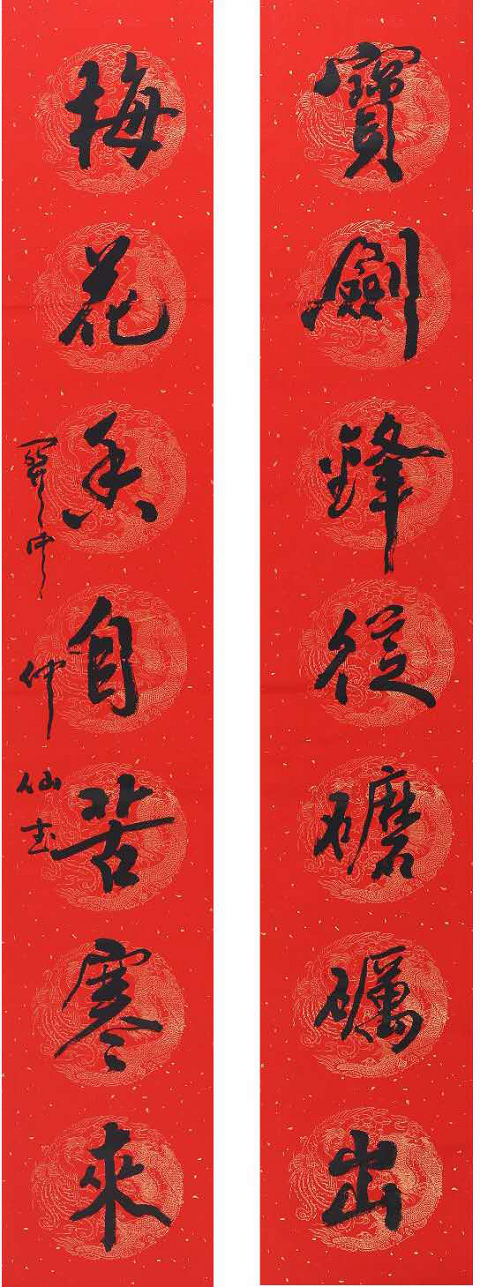 寶劍鋒從礪礪出
梅花香自苦寒來
仲仙书